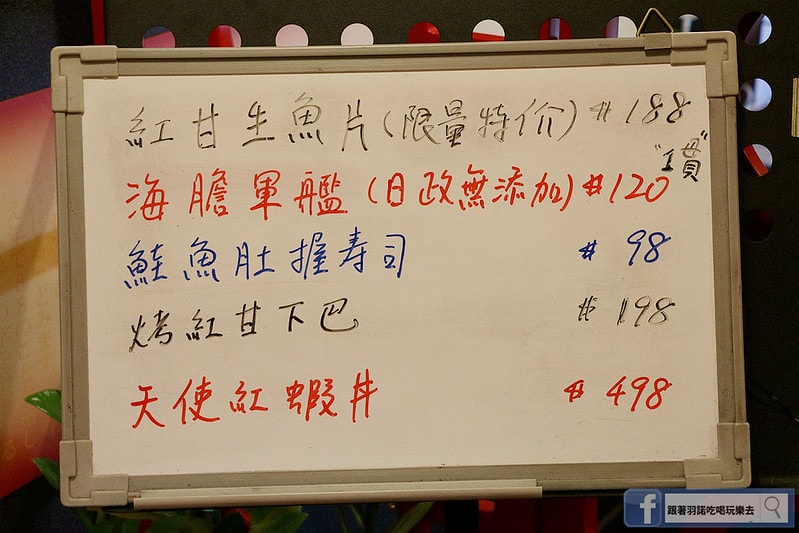 紅甘生魚片(限量特价) # 188
海膽軍艦(日政無添加) #120
"1貫"
鮭魚肚握壽司 # 98
烤紅甘下巴 # 198
天使紅蝦丼 # 498
f 跟著羽諾吃喝玩樂去